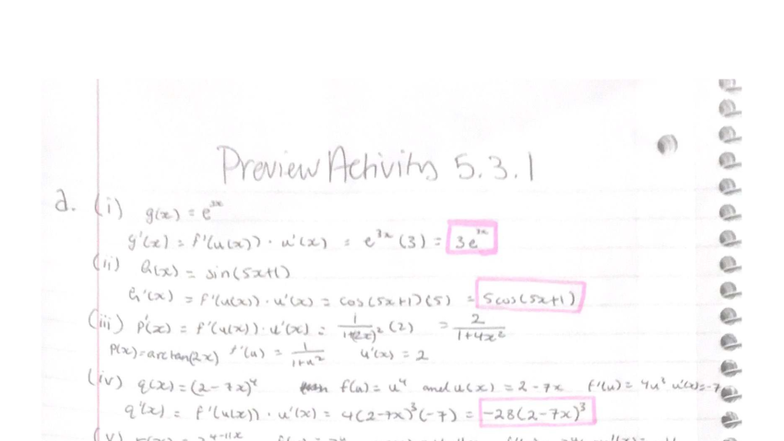 Preview Activity 5.3.1
a. (i) g(x) = e^3x
g'(x) = f'(u(x)) · u'(x) = e^3x (3) = 3e^3x
(ii) h(x) = sin(5x+1)
h'(x) = f'(u(x)) · u'(x) = cos(5x+1)(5) = 5cos(5x+1)
(iii) p'(x) = f'(u(x)) · u'(x) = 1/1+(2x)² (2) = 2/1+4x²
p(x) = arctan(2x) f'(u) = 1/1+u² u'(x) = 2
(iv) q(x) = (2-7x)⁴ f(u) = u⁴ and u(x) = 2-7x f'(u) = 4u³ u'(x) = -7
q'(x) = f'(u(x)) · u'(x) = 4(2-7x)³(-7) = -28(2-7x)³